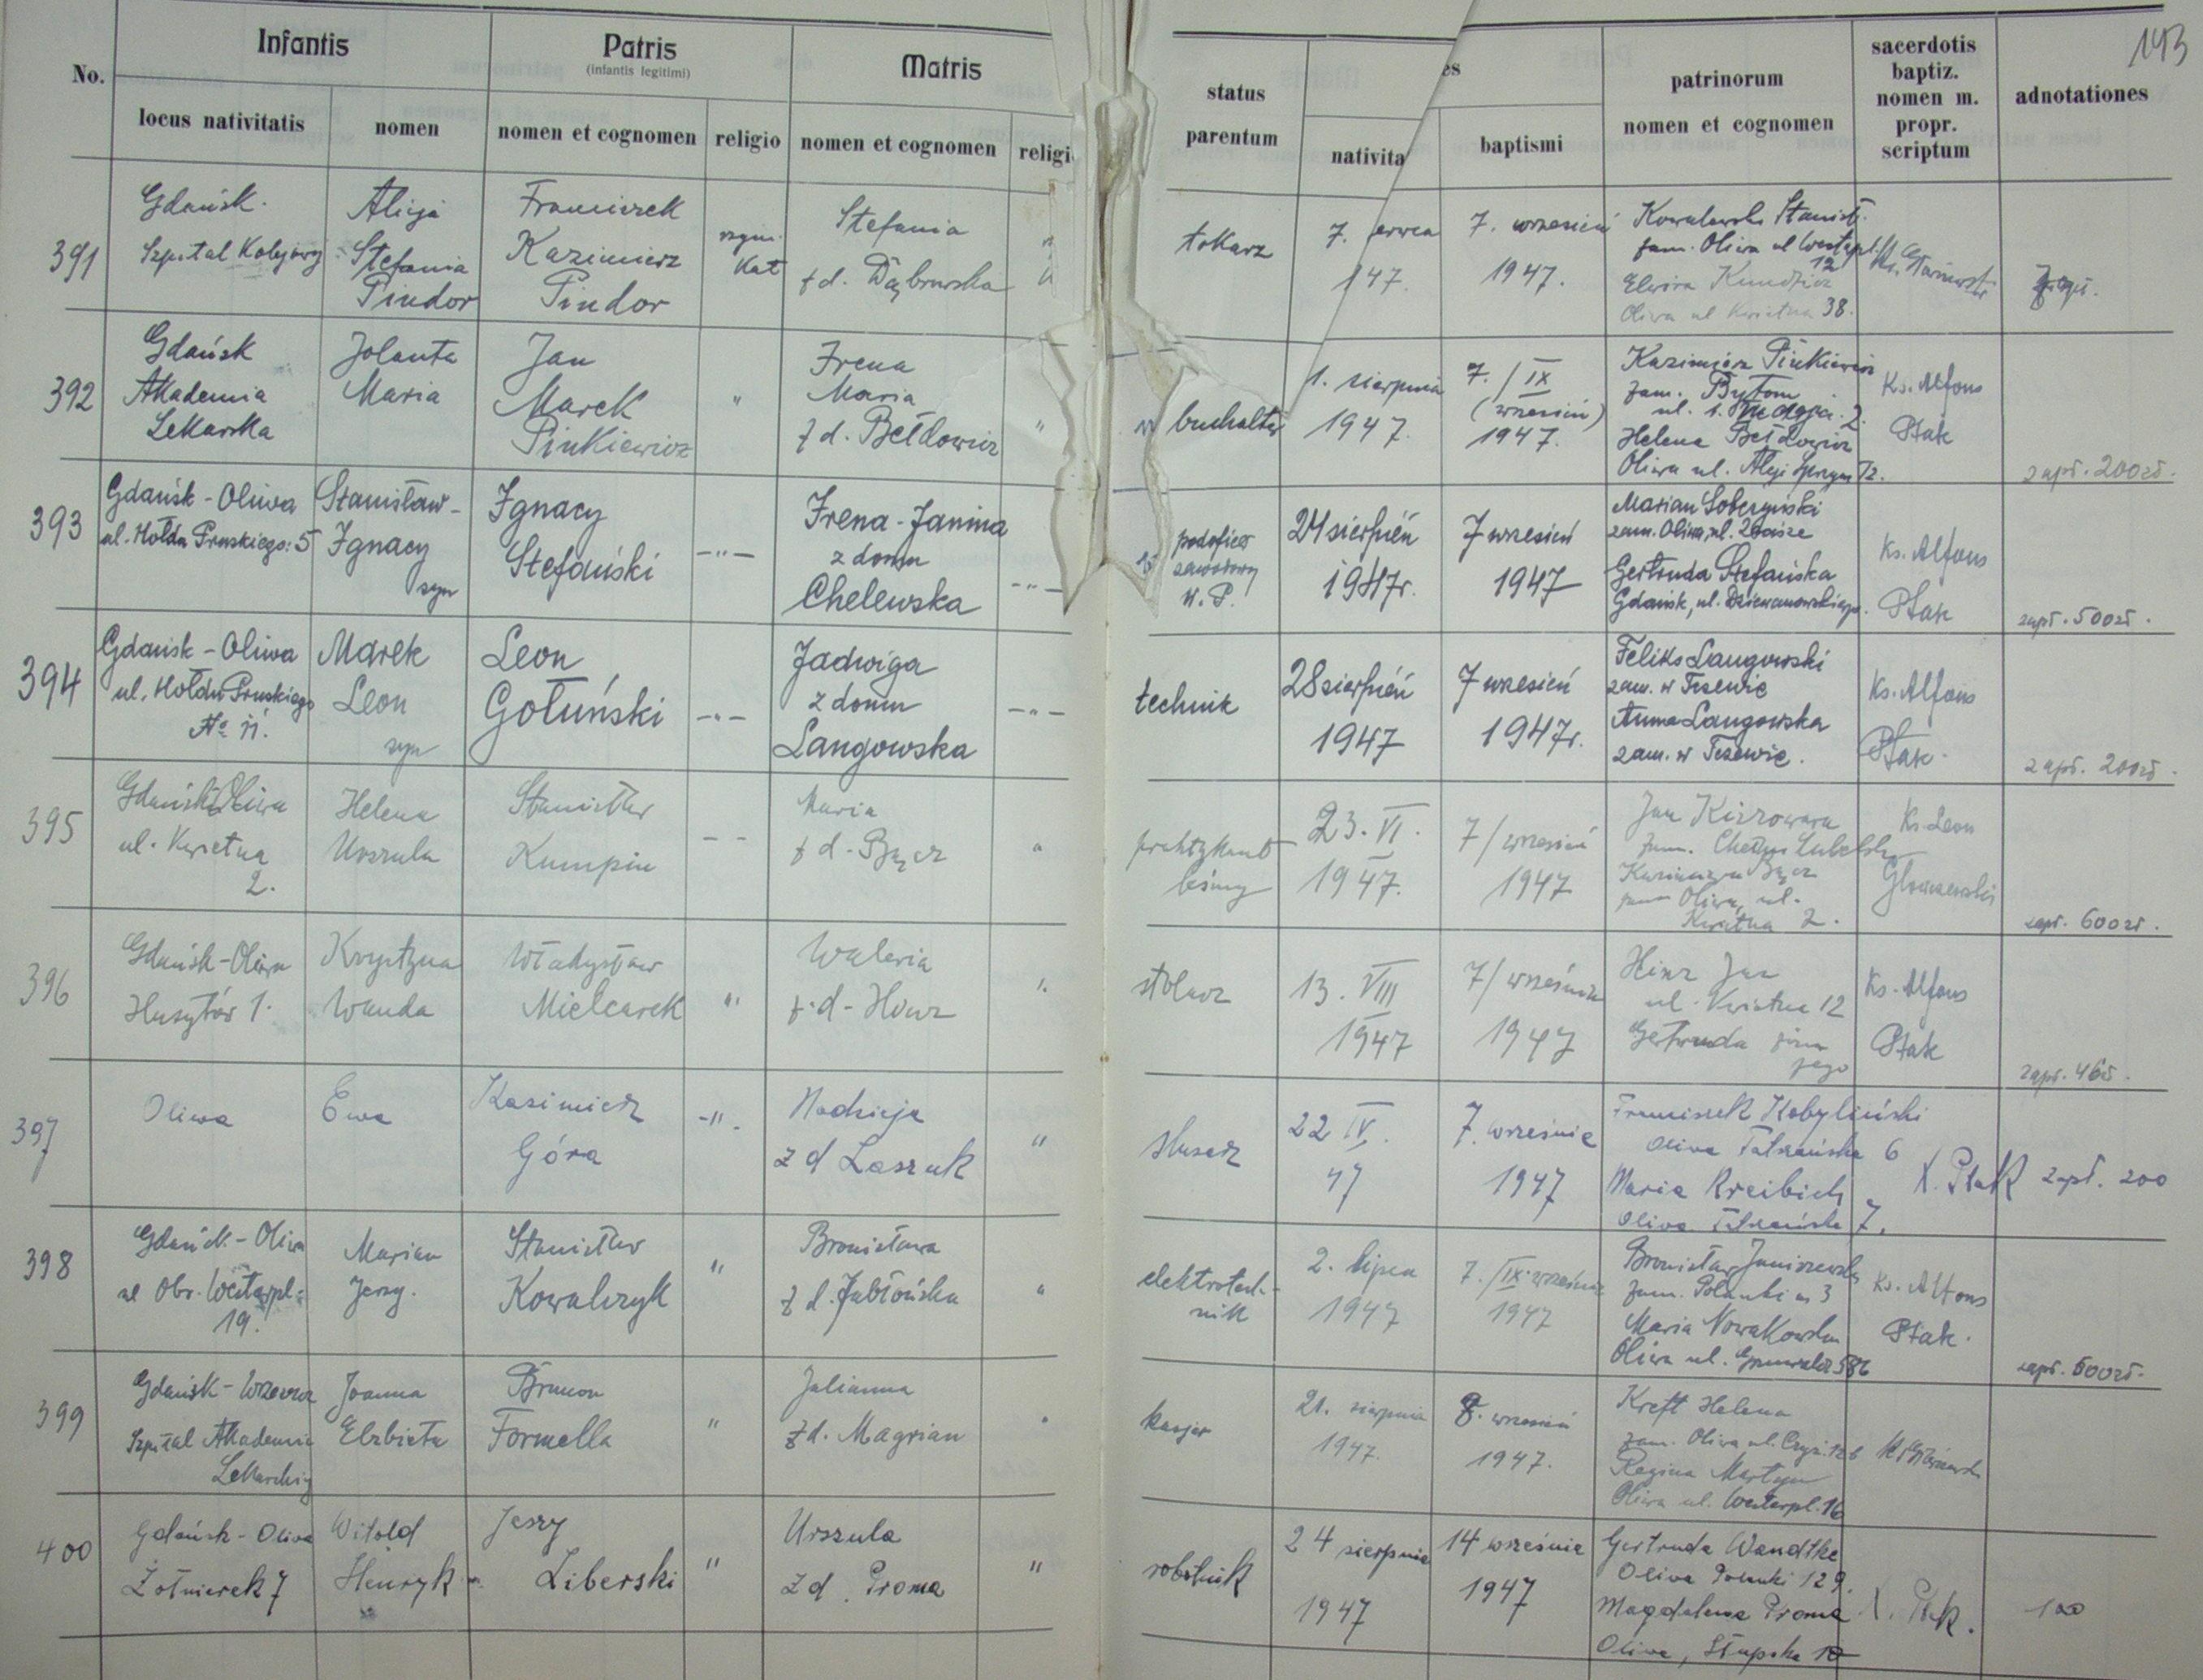 143
No.
Infantis
Patris
(infantis legitimi)
Matris
locus nativitatis
nomen
nomen et cognomen
religio
nomen et cognomen
religi
status
parentum
es
nativita
baptismi
patrinorum
nomen et cognomen
sacerdotis
baptiz.
nomen m.
propr.
scriptum
adnotationes
391
Gdańsk.
Szpital Kolejowy
Alicja
Stefania
Pindor
Franciszek
Kazimierz
Pindor
rzym.
Kat
Stefania
z d. Dąbrowska
tokarz
7. erwca
147.
7. wrzesień
1947.
Kowalewski Stanisł.
zam. Oliwa ul Westapl.
12
Elwira
Oliwa ul Kwietna 38.
392
Gdańsk
Akademia
Lekarska
Jolanta
Maria
Jan
Marek
Pinkiewicz
"
Irena
Maria
z d. Bełdowicz
"
buchalter
1. sierpnia
1947.
7. / IX
(wrzesień)
1947.
Kazimierz Pinkiewicz
zam. Bytom
ul. 1. Maja. 2.
Helena Bełdowicz
Oliwa ul. Alji 72.
Ks. Alfons
Ptak
zapł. 200zł.
393
Gdańsk - Oliwa
ul. Hołdu Pruskiego: 5
Stanisław -
Ignacy
syn
Ignacy
Stefański
- " -
Irena - Janina
z domu
Chelewska
- " -
podoficer
zawodowy
W. P.
24 sierpień
1947r.
7 wrzesień
1947
Marian Soberzyński
zam. Oliwa, ul.
Gertruda Stefańska
Gdańsk, ul. Dziewanowskiego.
Ks. Alfons
Ptak
zapł. 500zł.
394
Gdańsk - Oliwa
ul. Hołdu Pruskiego
№ 11.
Marek
Leon
syn
Leon
Gołuński
- " -
Jadwiga
z domu
Langowska
- " -
technik
28 sierpień
1947
7 wrzesień
1947r.
Feliks Langowski
zam. w Tczewie
Anna Langowska
zam. w Tczewie.
Ks. Alfons
Ptak.
zapł. 200zł.
395
Gdańsk Oliwa
ul. Kwietna
2.
Helena
Urszula
Stanisław
Kumpin
- -
Maria
z d. Bącz
"
praktykant
leśny
23. VI.
1947.
7/ wrzesień
1947
Jan
zam. Chełm Lubelski
Bącz
zam Oliwa, ul.
Kwietna 2.
Ks. Leon
zapł. 600zł.
396
Gdańsk - Oliwa
Husytów 1.
Krystyna
Wanda
Władysław
Mielcarek
"
Waleria
z. d. Hinz
"
stolarz
13. VIII
1947
7/ września
1947
Hinz Jan
ul. Kwietna 12
Gertruda żona
jego
Ks. Alfons
Ptak
397
Oliwa
Ewa
Kazimierz
Góra
- " -
Nadzieja
z d Laszuk
"
ślusarz
22 IV.
47
7. września
1947
Franciszek Kobyliński
Oliwa Tatrzańska 6
Maria Kreibich
Oliwa Tatrzańska 7.
X. Ptak
zapł. 200
398
Gdańsk - Oliwa
ul Obr. Westerpl.
19.
Marian
Jerzy.
Stanisław
Kowalczyk
"
Bronisława
z d. Jabłońska
"
elektrotech-
nik
2. lipca
1947
7. / IX. września
1947
Bronisław
zam. Polanki 3
Maria Nowakowska
Oliwa ul. Grunwaldz 586
Ks. Alfons
Ptak.
zapł. 500zł.
399
Gdańsk - Wrzeszcz
Szpital Akademii
Lekarskiej
Joanna
Elżbieta
Brunon
Formella
"
Julianna
z d. Magrian
"
kasjer
21. sierpnia
1947.
8. wrzesień
1947.
Kreft Helena
zam. Oliwa ul.
Regina Martyn
Oliwa ul. Westerpl. 16
400
Gdańsk - Oliwa
Żołnierek 7
Witold
Henryk
Jerzy
Liberski
"
Urszula
z d. Proma
"
robotnik
24 sierpnia
1947
14 września
1947
Gertruda Wandtke
Oliwa Polanki 129.
Magdalena Proma
Oliwa, Słupska 10
X. Ptak.
100